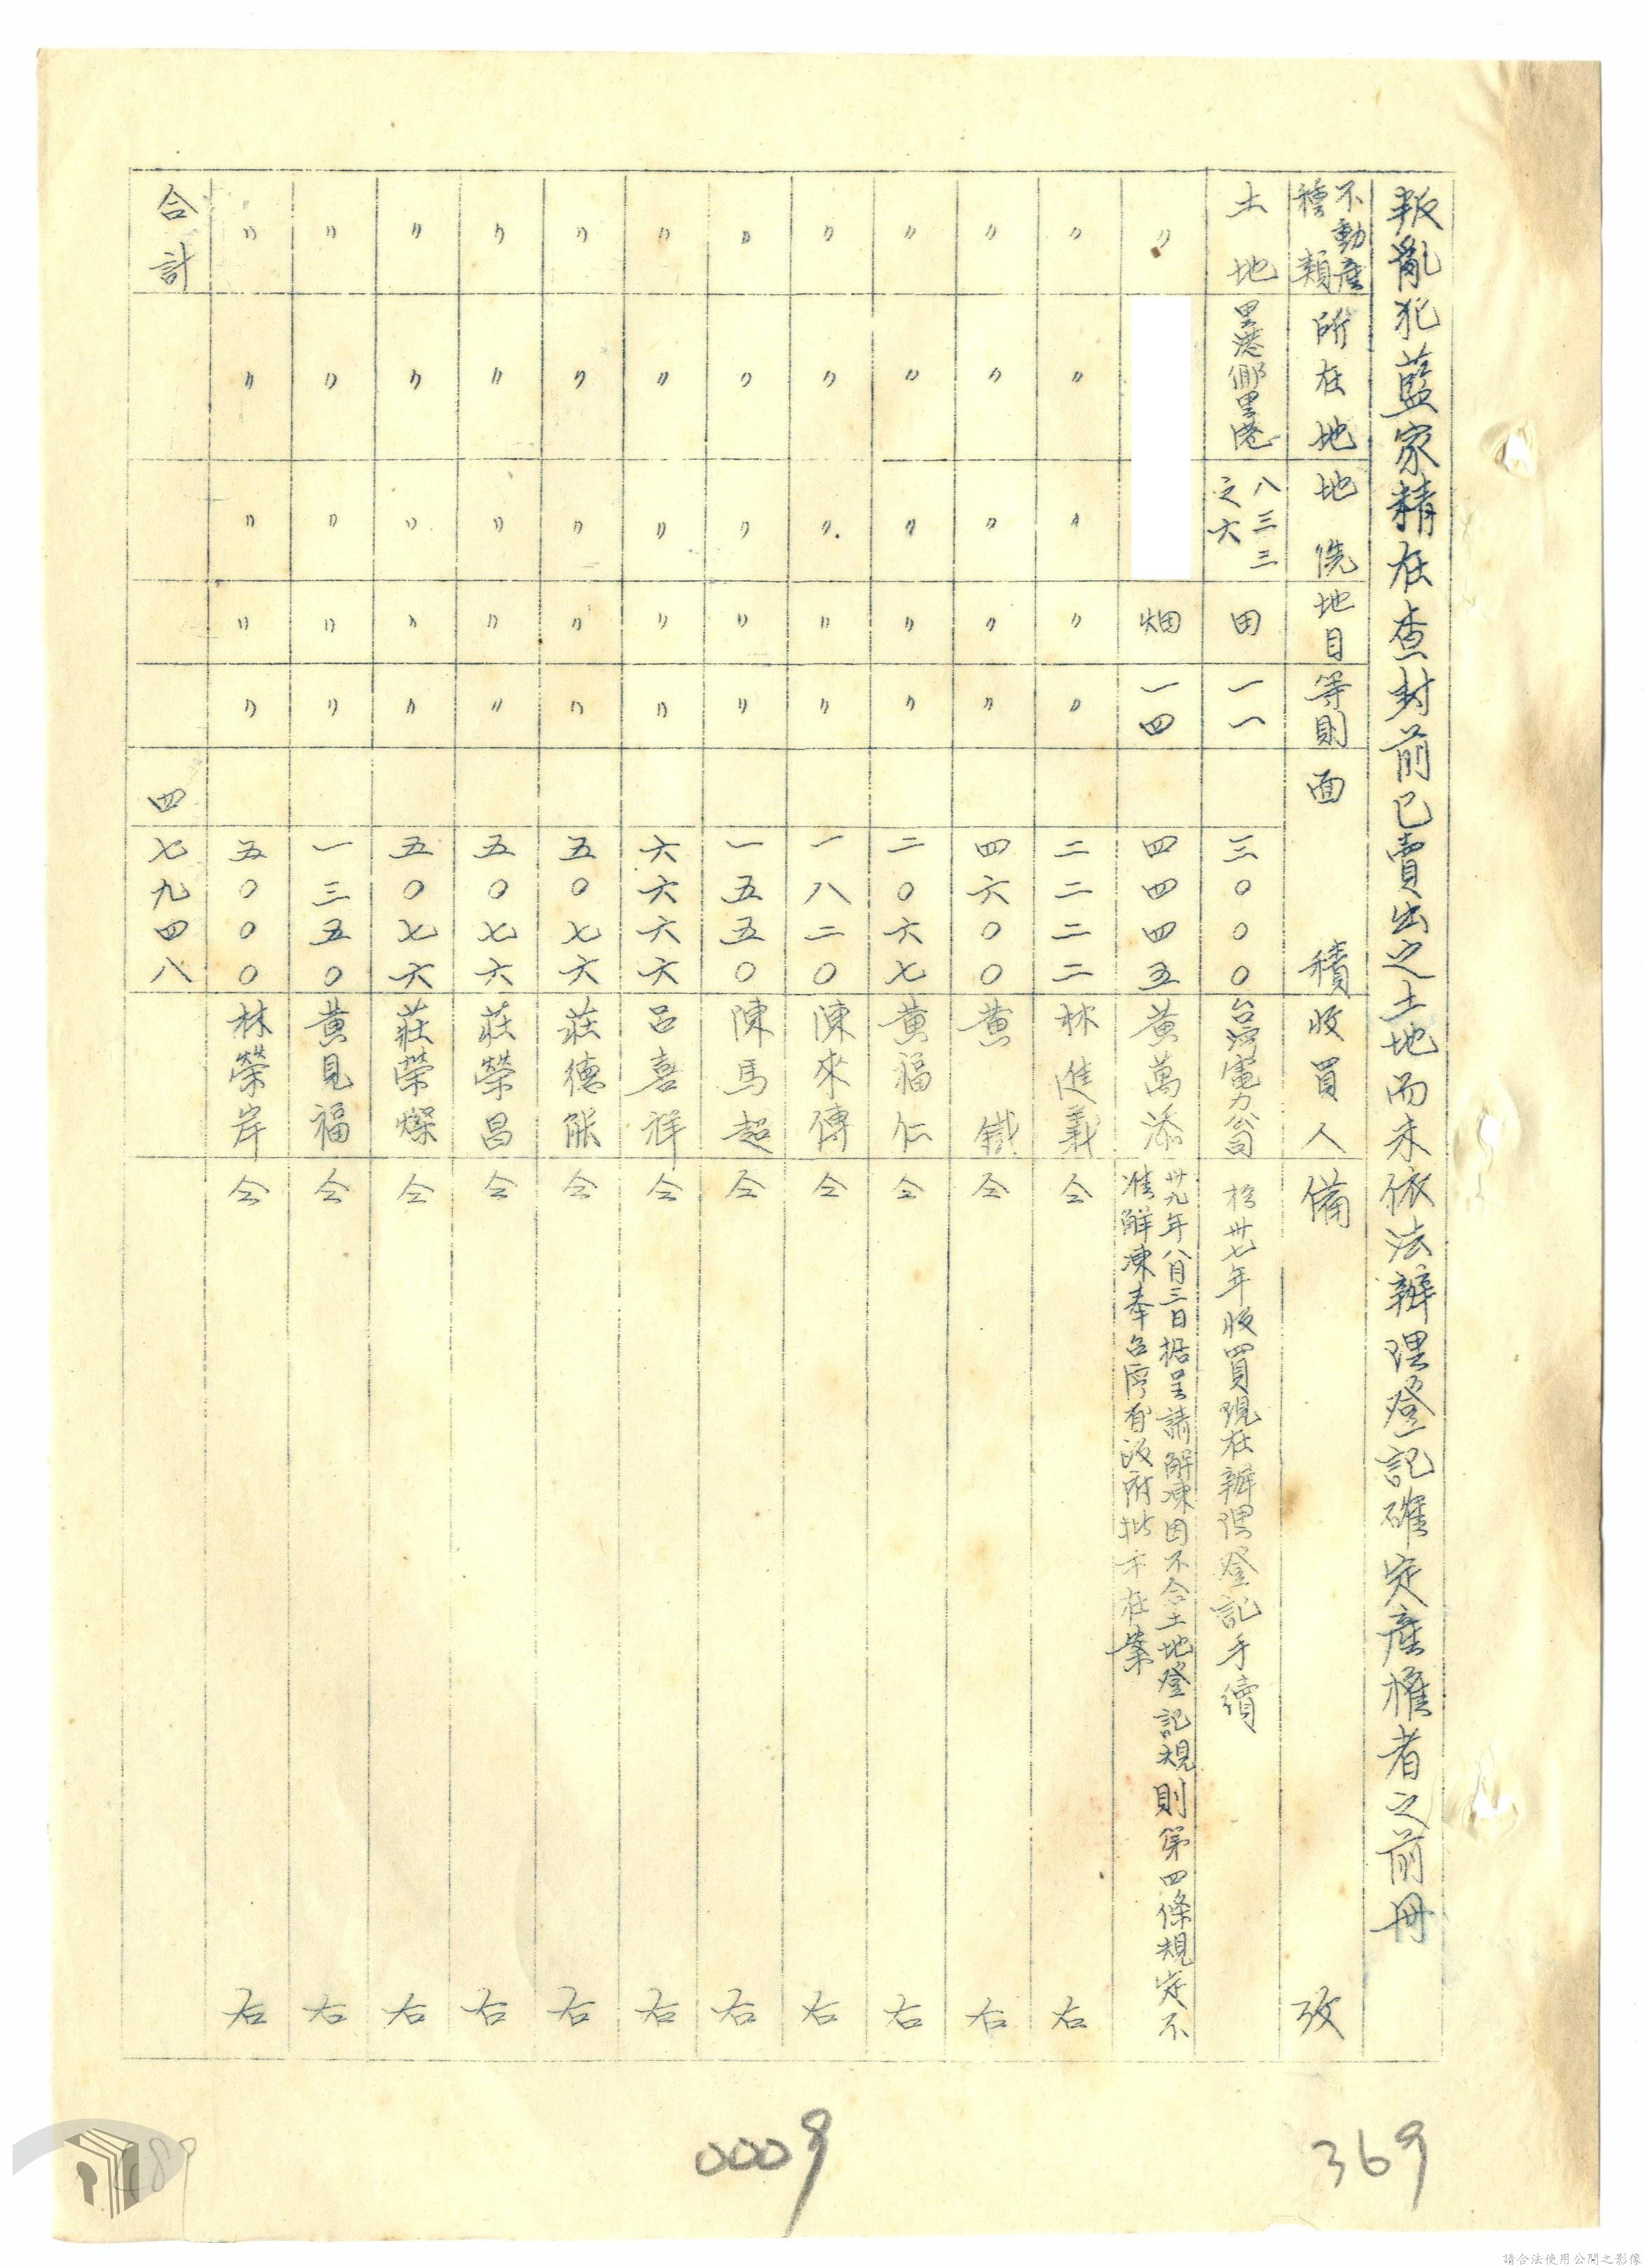 叛亂犯藍家精在查封前已賣出之土地而未依法辦理登記確定產權者之前冊
不動產種類 所在地 地 地目 等則 面積 收買人 備攷
土地 里港鄉里港 八三三之六 田 一一 三〇〇〇 台灣電力公司 於卅七年收買現在辦理登記手續
〃 畑 一四 四四四五 黃萬添 卅九年八月三日據呈請解凍因不合土地登記規則第四條規定不
准解凍奉台灣省政府批示在案
〃 〃 〃 〃 〃 二二二二 林進義 仝右
〃 〃 〃 〃 〃 四六〇〇 黃鐵 仝右
〃 〃 〃 〃 〃 二〇六七 黃福仁 仝右
〃 〃 〃 〃 〃 一八二〇 陳來傳 仝右
〃 〃 〃 〃 〃 一五五〇 陳馬超 仝右
〃 〃 〃 〃 〃 六六六六 呂喜祥 仝右
〃 〃 〃 〃 〃 五〇七六 莊德能 仝右
〃 〃 〃 〃 〃 五〇七六 莊榮昌 仝右
〃 〃 〃 〃 〃 五〇七六 莊榮燦 仝右
〃 〃 〃 〃 〃 一三五〇 黃見福 仝右
〃 〃 〃 〃 〃 五〇〇〇 林榮岸 仝右
合計 四七九四八
369
0009
請合法使用公開之影像